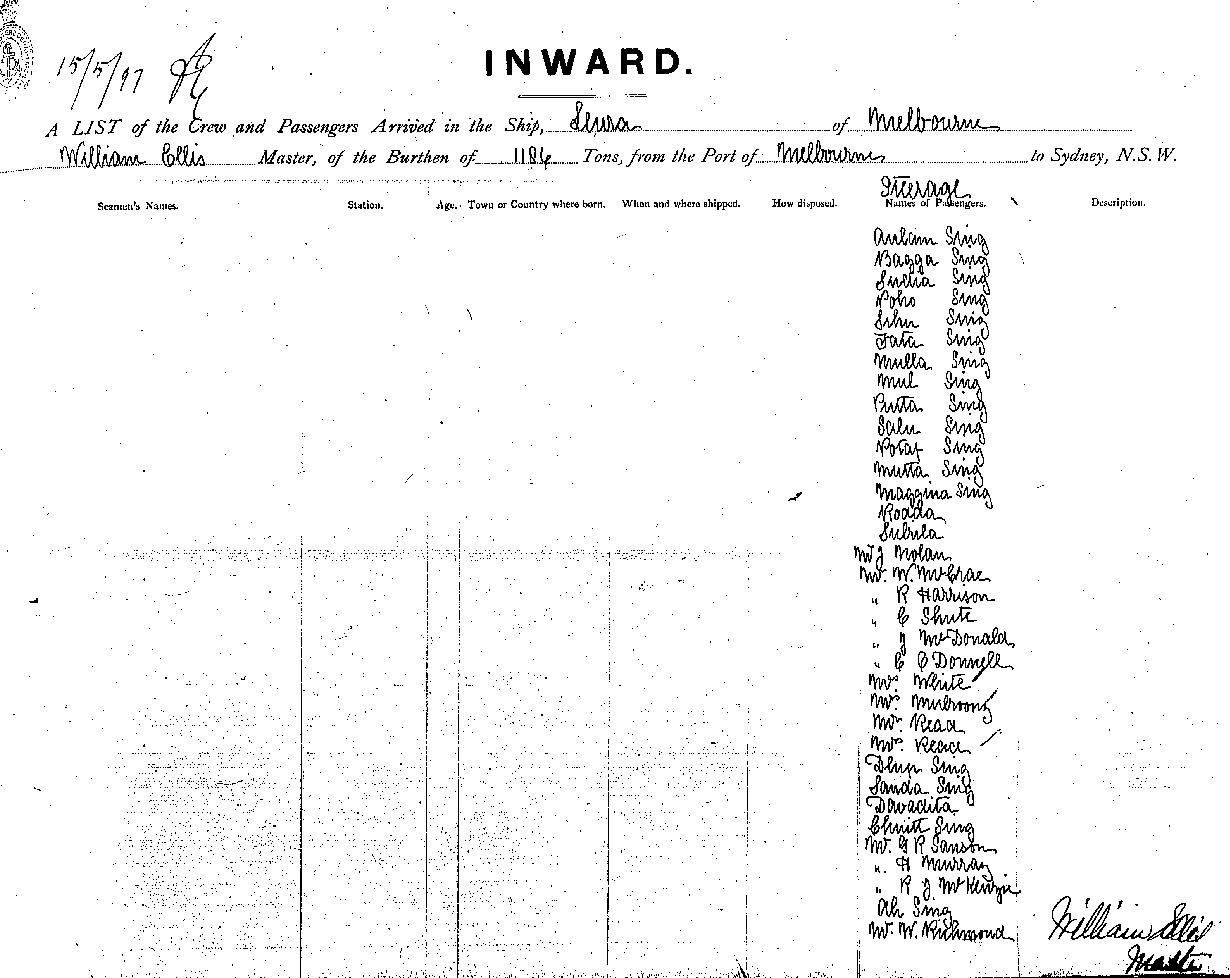 15/5/97
INWARD.
A LIST of the Crew and Passengers Arrived in the Ship, Leura of Melbourne
William Ellis Master, of the Burthen of 1186 Tons, from the Port of Melbourne to Sydney, N.S.W.
Steerage
Seamen's Names. Station. Age. Town or Country where born. When and where shipped. How disposed. Names of Passengers. Description.
Aulam Sing
Bagga Sing
Sucha Sing
Poho Sing
Sihu Sing
Jata Sing
Mulla Sing
Mul Sing
Butta Sing
Salu Sing
Potaf Sing
Mutta Sing
Maggina Sing
Roada
Subula
Mr J Nolan
Mr. W. McCrae
" R Harrison
" C Shute
" J McDonald
" C O'Donnell
Mrs White
Mrs Mulroony
Mr Read
Mrs Read
Dhup Sing
Sanda Sing
Davadita
Chuitt Sing
Mr. G R Sanson
" H Murray
" R J McKenzie
Ah Sing
Mr. W. Richmond
William Ellis
Master